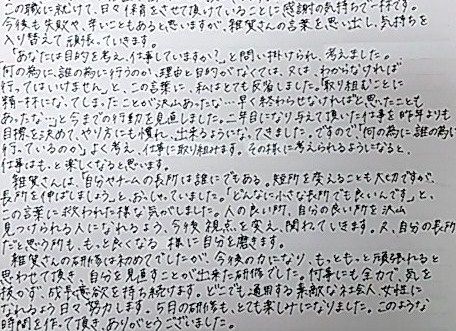 この職に就けて、日々保育をさせて頂けていることに感謝の気持ちで一杯です。
今後も失敗や、辛いこともあると思いますが、雑賀さんの言葉を思い出し、気持ちを
入り替えて頑張っていきます。
「あなたは目的を考え、仕事していますか?」と問い掛けられ、考えました。
何の為に、誰の為に行うのか、理由と目的がなくては、又は、わからなければ
行ってはいけません」と、この言葉に、私はとても反省しました。取り組むことに
精一杯になってしまったことが沢山あったな…早く終わらせなければと思ったことも
あったな…」と今までの行動を見直しました。二年目になり与えて頂いた仕事を昨年よりも
目標を決めて、やり方にも慣れ、出来るようになってきました。ですので「何の為に誰の為に
行っているのか」よく考え、仕事に取り組めます。その様に考えられるようになると、
仕事はもっと楽しくなると思います。
雑賀さんは、「自分やチームの長所は誰にでもある。短所を変えることも大切ですが、
長所を伸ばしましょう」と、おっしゃっていました。「どんなに小さな長所でも良いんです」と、
この言葉に救われた様な気がしました。人の良い所、自分の良い所を沢山
見つけられる人になれるよう、今後視点を変え、関わていきます。又、自分の長所
だと思う所も、もっと良くなる様に自分を磨きます。
雑賀さんの研修は初めてでしたが、今後の力になり、もっともっと頑張れると
思わせて頂き、自分を見直すことが出来た研修でした。何事にも全力で、気を
抜かず、成長意欲を持ち続けます。どこでも通用する素敵な社会人、女性に
なれるよう日々努力します。5月の研修も、とても楽しみになりました。このような
時間を作って頂き、ありがとうございました。